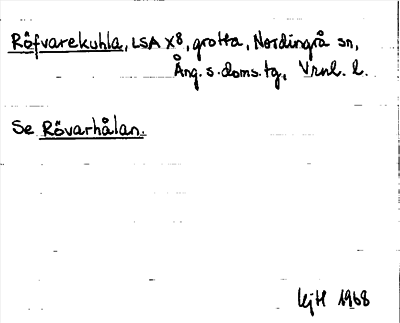 Röfvarekuhla, LSA X8, grotta, Nordingrå sn,
Ång. s. doms. tg, Vrnl. l.
Se Rövarhålan.
KjH 1968